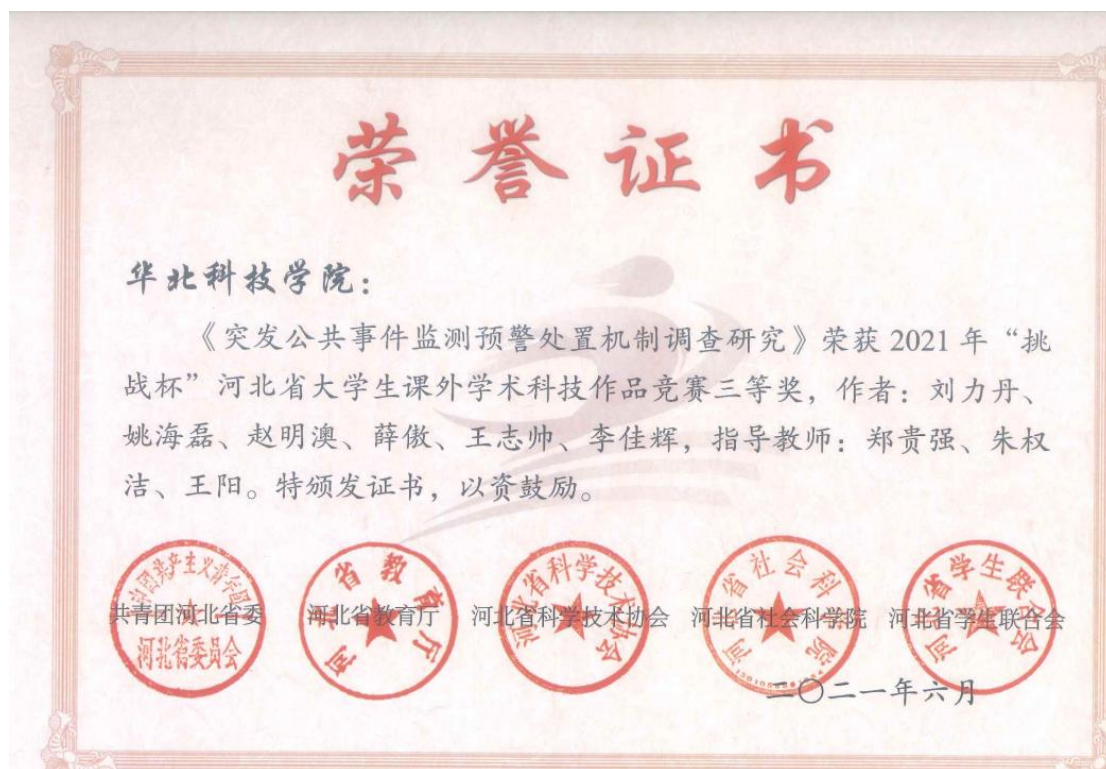 荣誉证书
华北科技学院：
《突发公共事件监测预警处置机制调查研究》荣获 2021 年“挑
战杯”河北省大学生课外学术科技作品竞赛三等奖，作者：刘力丹、
姚海磊、赵明澳、薛傲、王志帅、李佳辉，指导教师：郑贵强、朱权
洁、王阳。特颁发证书，以资鼓励。
中国共产主义青年团
河北省委员会
河北省教育厅
河北省科学技术协会
河北省社会科学院
河北省学生联合会
共青团河北省委 河北省教育厅 河北省科学技术协会 河北省社会科学院 河北省学生联合会
二〇二一年六月